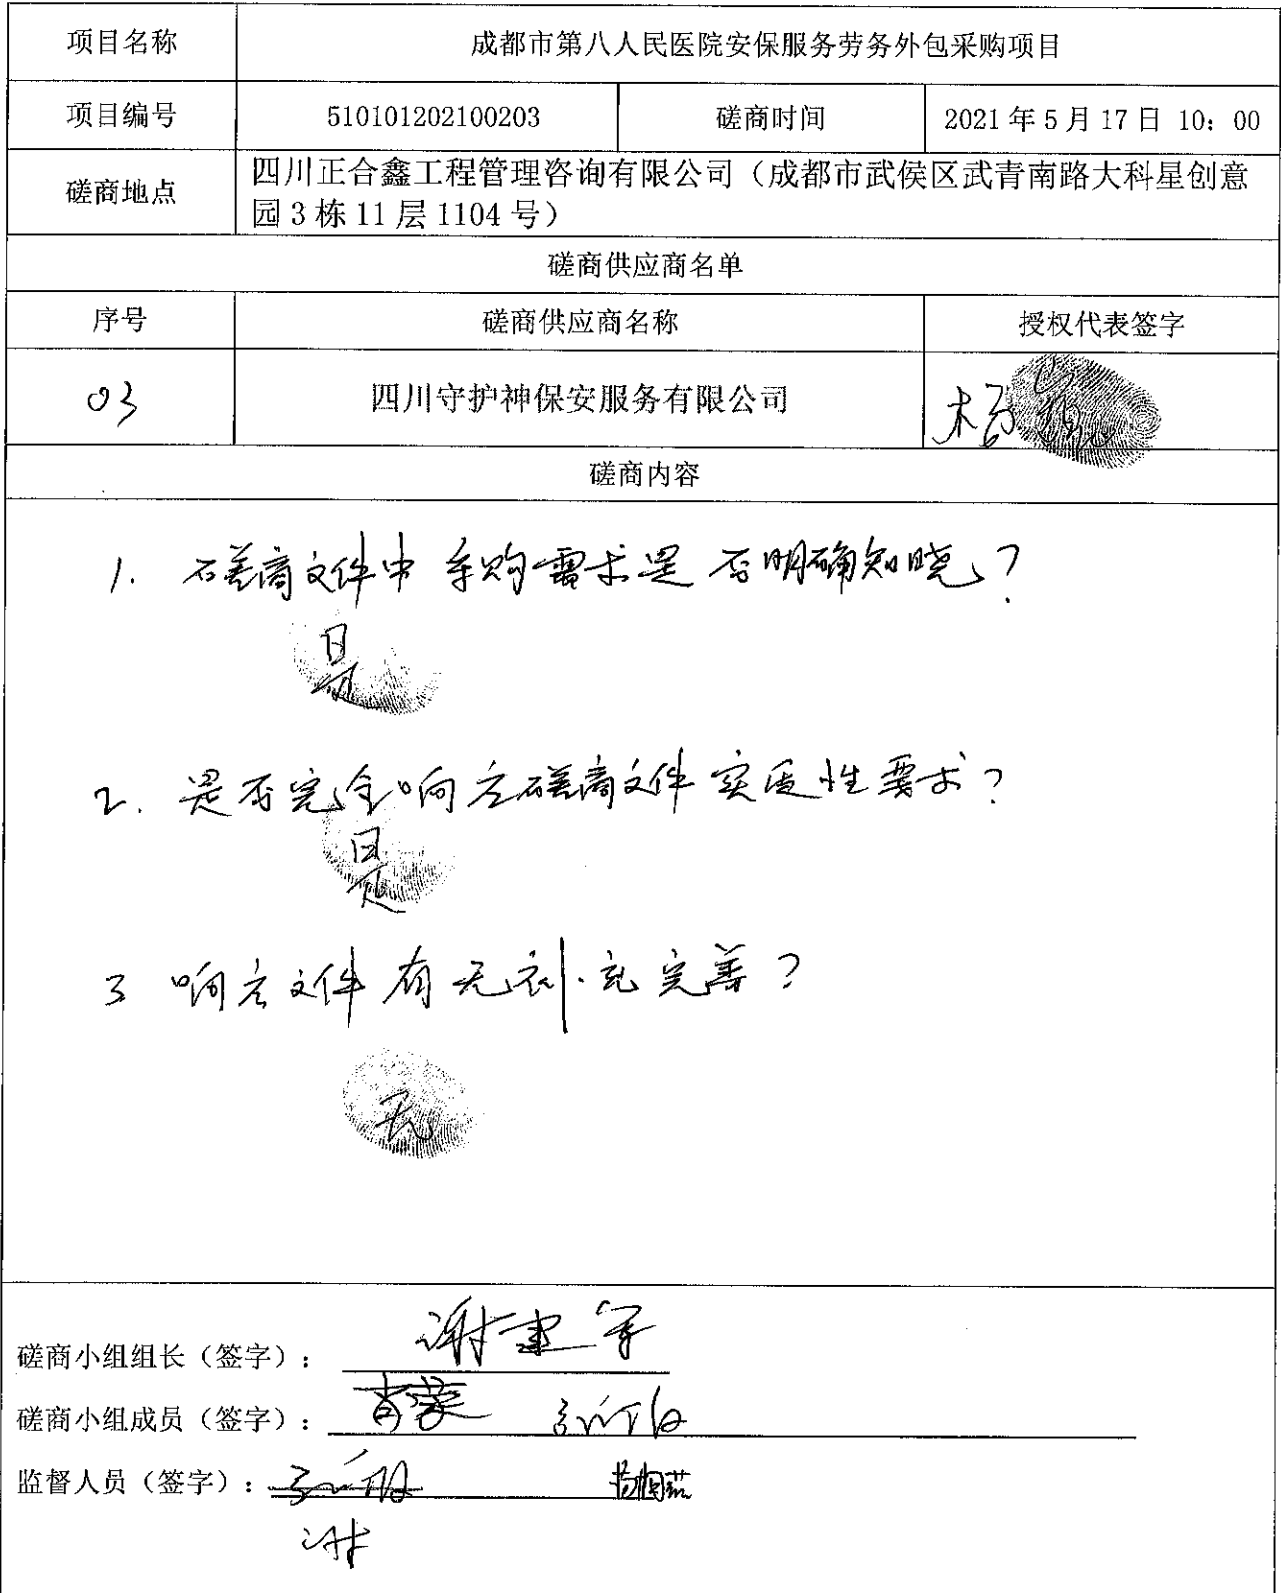 项目名称 成都市第八人民医院安保服务劳务外包采购项目
项目编号 510101202100203 磋商时间 2021年5月17日 10：00
磋商地点 四川正合鑫工程管理咨询有限公司（成都市武侯区武青南路大科星创意
园3栋11层1104号）
磋商供应商名单
序号 磋商供应商名称 授权代表签字
03 四川守护神保安服务有限公司
磋商内容
1. 磋商文件中采购需求是否明确知晓？
是
2. 是否完全响应磋商文件实质性要求？
是
3 响应文件有无补充完善？
无
磋商小组组长（签字）：
磋商小组成员（签字）：
监督人员（签字）：